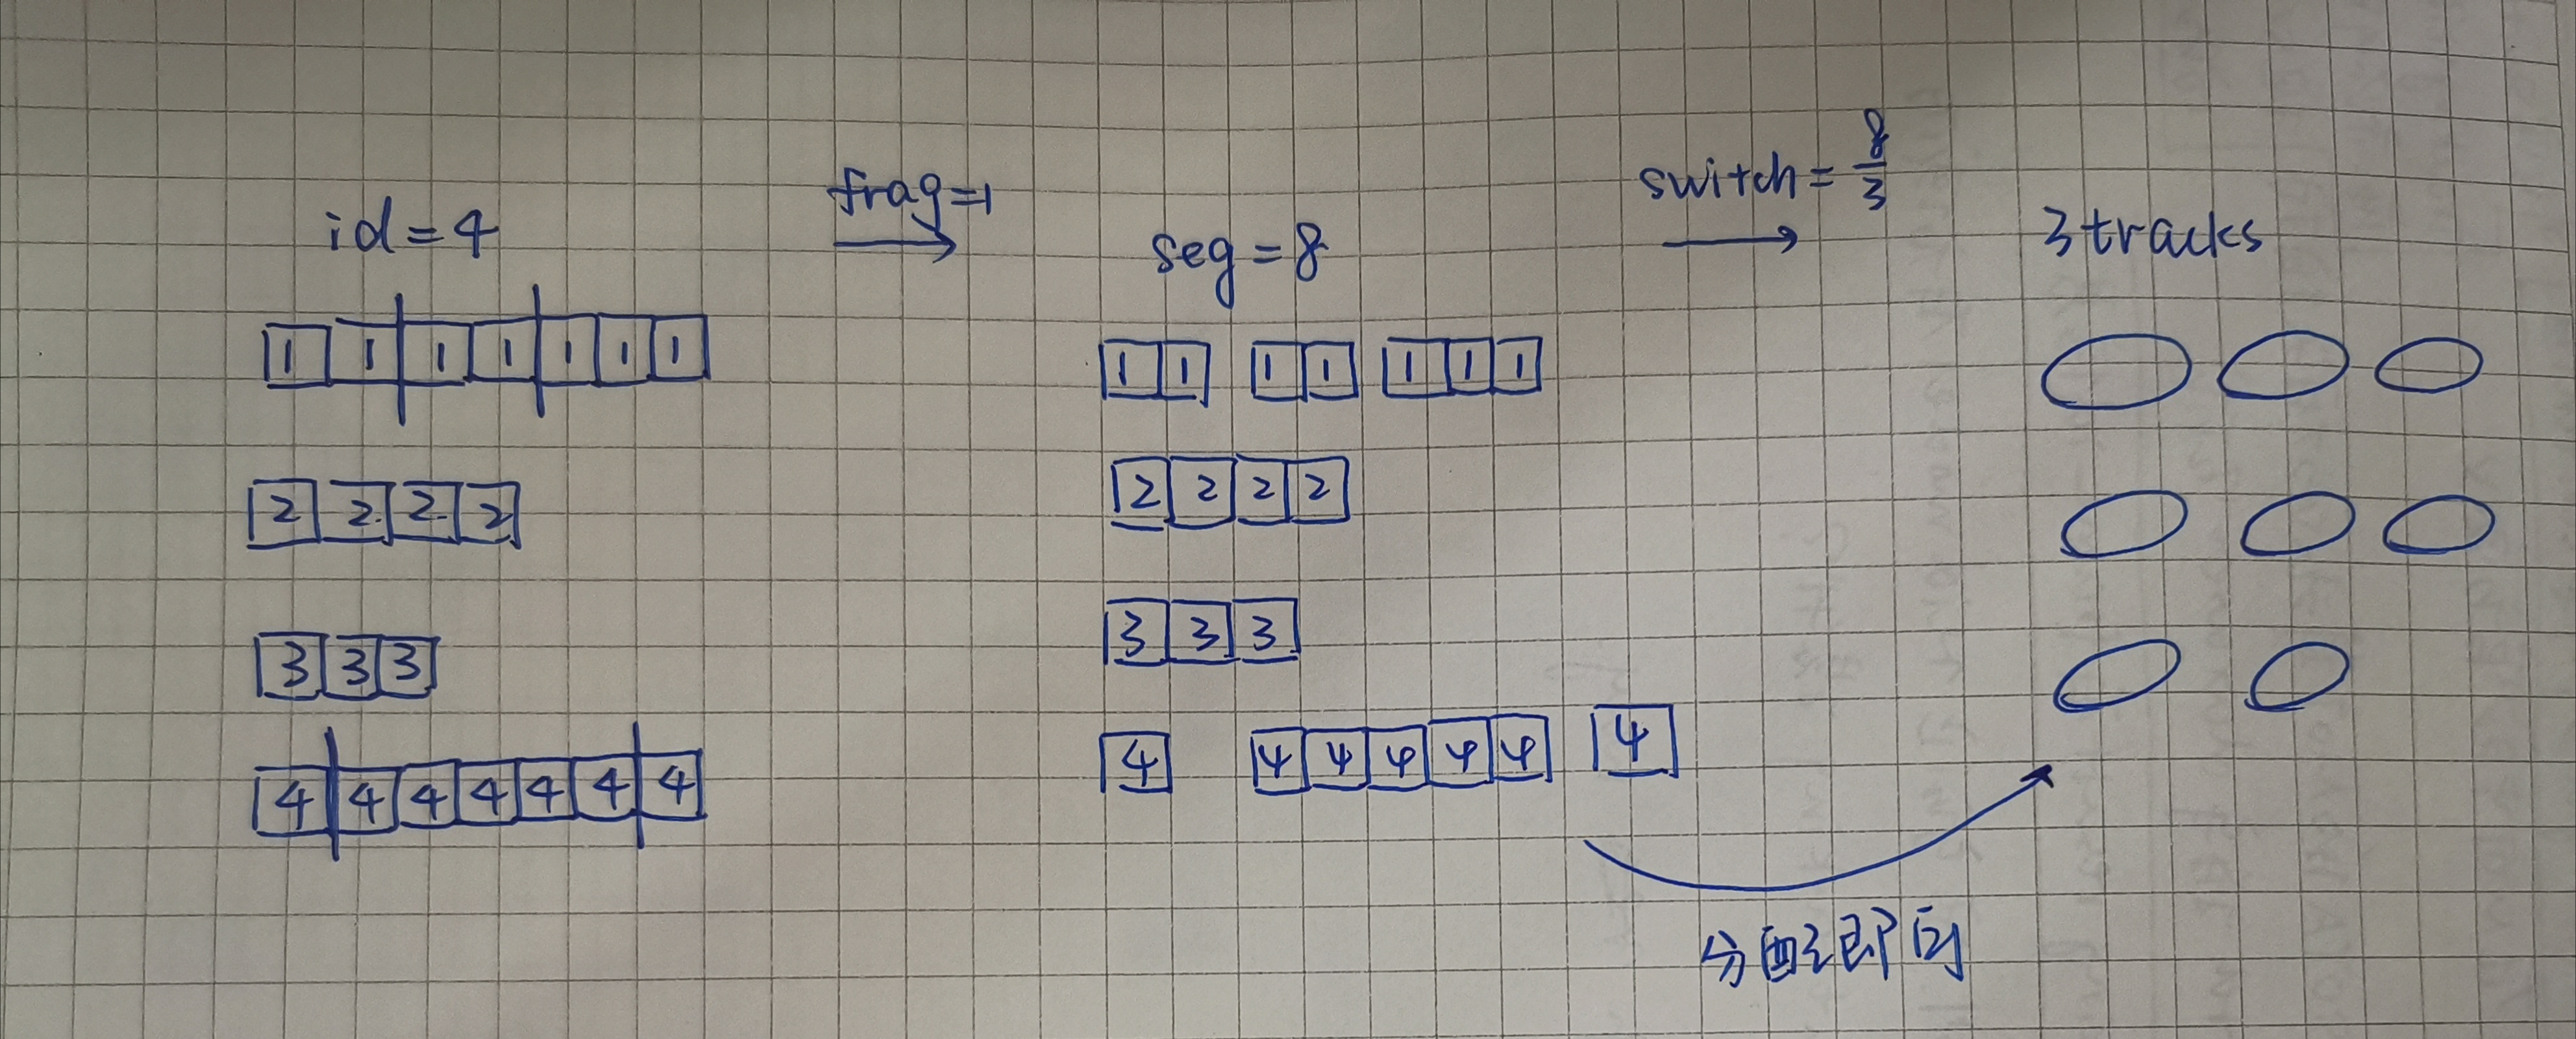 id=4
frag=1
seg=8
switch=8/3
3 tracks
1 1 1 1 1 1 1
1 1 1 1 1 1 1
2 2 2 2
2 2 2 2
3 3 3
3 3 3
4 4 4 4 4 4 4
4 4 4 4 4 4 4
分配即可